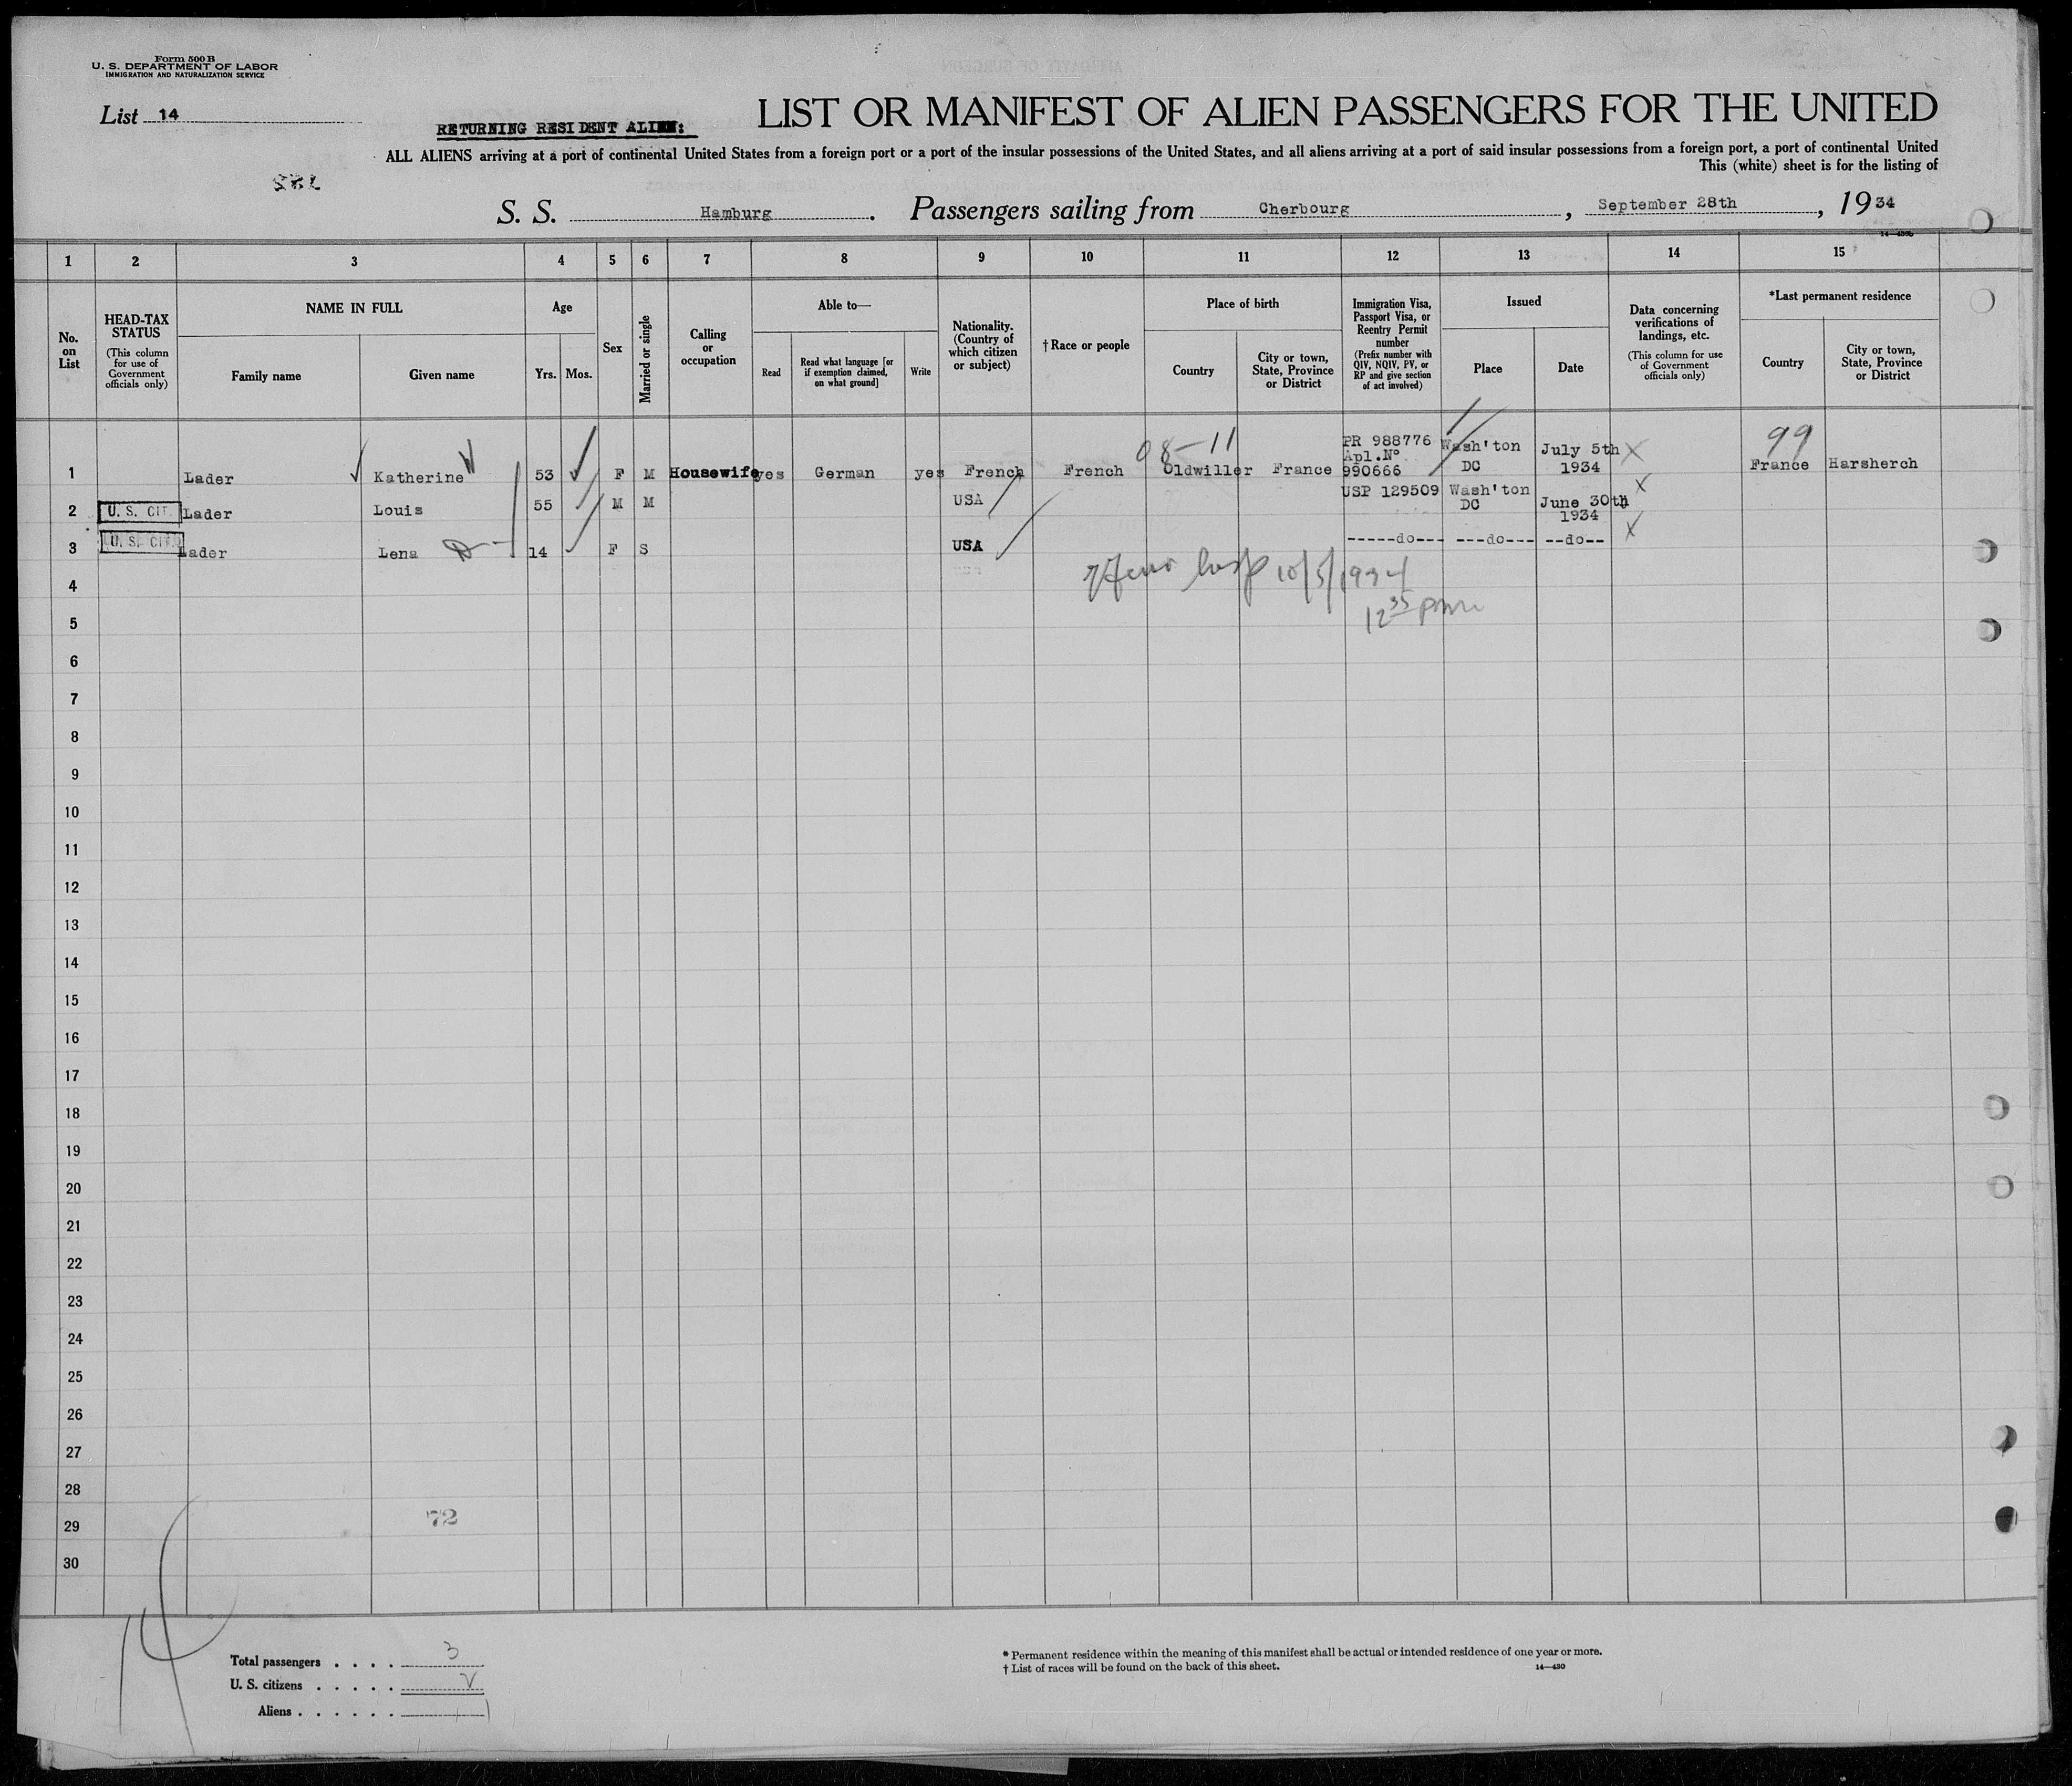 Form 500 B
U. S. DEPARTMENT OF LABOR
IMMIGRATION AND NATURALIZATION SERVICE
List 14
RETURNING RESIDENT ALIEN:
LIST OR MANIFEST OF ALIEN PASSENGERS FOR THE UNITED
ALL ALIENS arriving at a port of continental United States from a foreign port or a port of the insular possessions of the United States, and all aliens arriving at a port of said insular possessions from a foreign port, a port of continental United
This (white) sheet is for the listing of
S. S. Hamburg. Passengers sailing from Cherbourg, September 28th, 1934
1 2 3 4 5 6 7 8 9 10 11 12 13 14 15
No. on List
HEAD-TAX STATUS
(This column for use of Government officials only)
NAME IN FULL
Family name
Given name
Age
Yrs.
Mos.
Sex
Married or single
Calling or occupation
Able to—
Read
Read what language [or if exemption claimed, on what ground]
Write
Nationality. (Country of which citizen or subject)
†Race or people
Place of birth
Country
City or town, State, Province or District
Immigration Visa, Passport Visa, or Reentry Permit number
(Prefix number with QIV, NQIV, PV, or RP and give section of act involved)
Issued
Place
Date
Data concerning verifications of landings, etc.
(This column for use of Government officials only)
*Last permanent residence
Country
City or town, State, Province or District
08-11
99
1 Lader Katherine 53 F M Housewife yes German yes French French Oldwiller France PR 988776 Apl.Nº 990666 Wash'ton DC July 5th 1934 X France Harsherch
2 U. S. CIT. Lader Louis 55 M M USA USP 129509 Wash'ton DC June 30th 1934 X
3 U. S. CIT. Lader Lena 14 F S USA -----do--- ---do--- --do-- X
10/5/1934
12 35 pm
4
5
6
7
8
9
10
11
12
13
14
15
16
17
18
19
20
21
22
23
24
25
26
27
28
29
30
72
14
Total passengers . . . . 3
U. S. citizens . . . . . 2
Aliens . . . . . . 1
* Permanent residence within the meaning of this manifest shall be actual or intended residence of one year or more.
† List of races will be found on the back of this sheet.
14—430